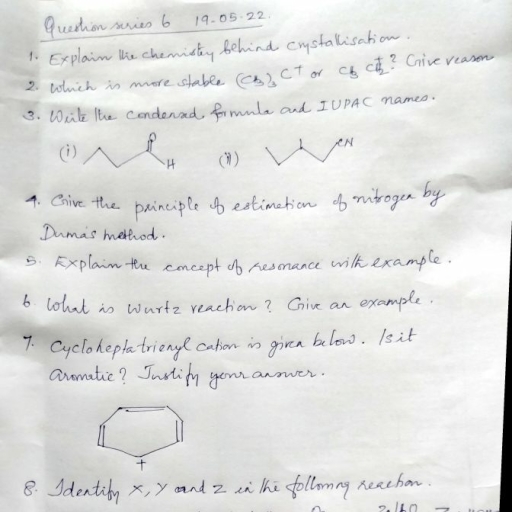 Question series 6 19-05-22.
1. Explain the chemistry behind crystallisation.
2. Which is more stable (CH3)3 C+ or CH3 CH2+? Give reason
3. Write the condensed formula and IUPAC names.
(i) O H (ii) CN
4. Give the principle of estimation of nitrogen by
Duma's method.
5. Explain the concept of resonance with example.
6 What is wurtz reaction? Give an example.
7. Cycloheptatrienyl cation is given below. Is it
aromatic? Justify your answer.
+
8. Identify X, Y and Z in the following reaction.